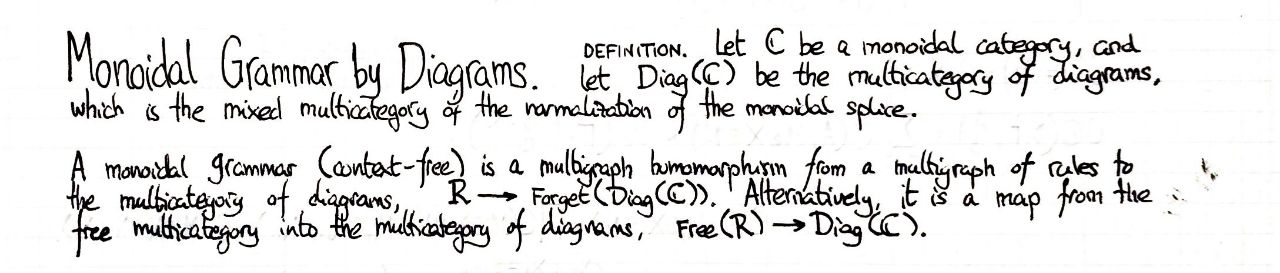 Monoidal Grammar by Diagrams. DEFINITION. Let ℂ be a monoidal category, and
let Diag(ℂ) be the multicategory of diagrams,
which is the mixed multicategory of the normalization of the monoidal splice.
A monoidal grammar (context-free) is a multigraph homomorphism from a multigraph of rules to
the multicategory of diagrams, R → Forget(Diag(ℂ)). Alternatively, it is a map from the
free multicategory into the multicategory of diagrams, Free(R) → Diag(ℂ).